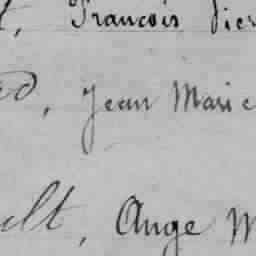 t, François Pier
d, Jean Marie
elt, Ange M